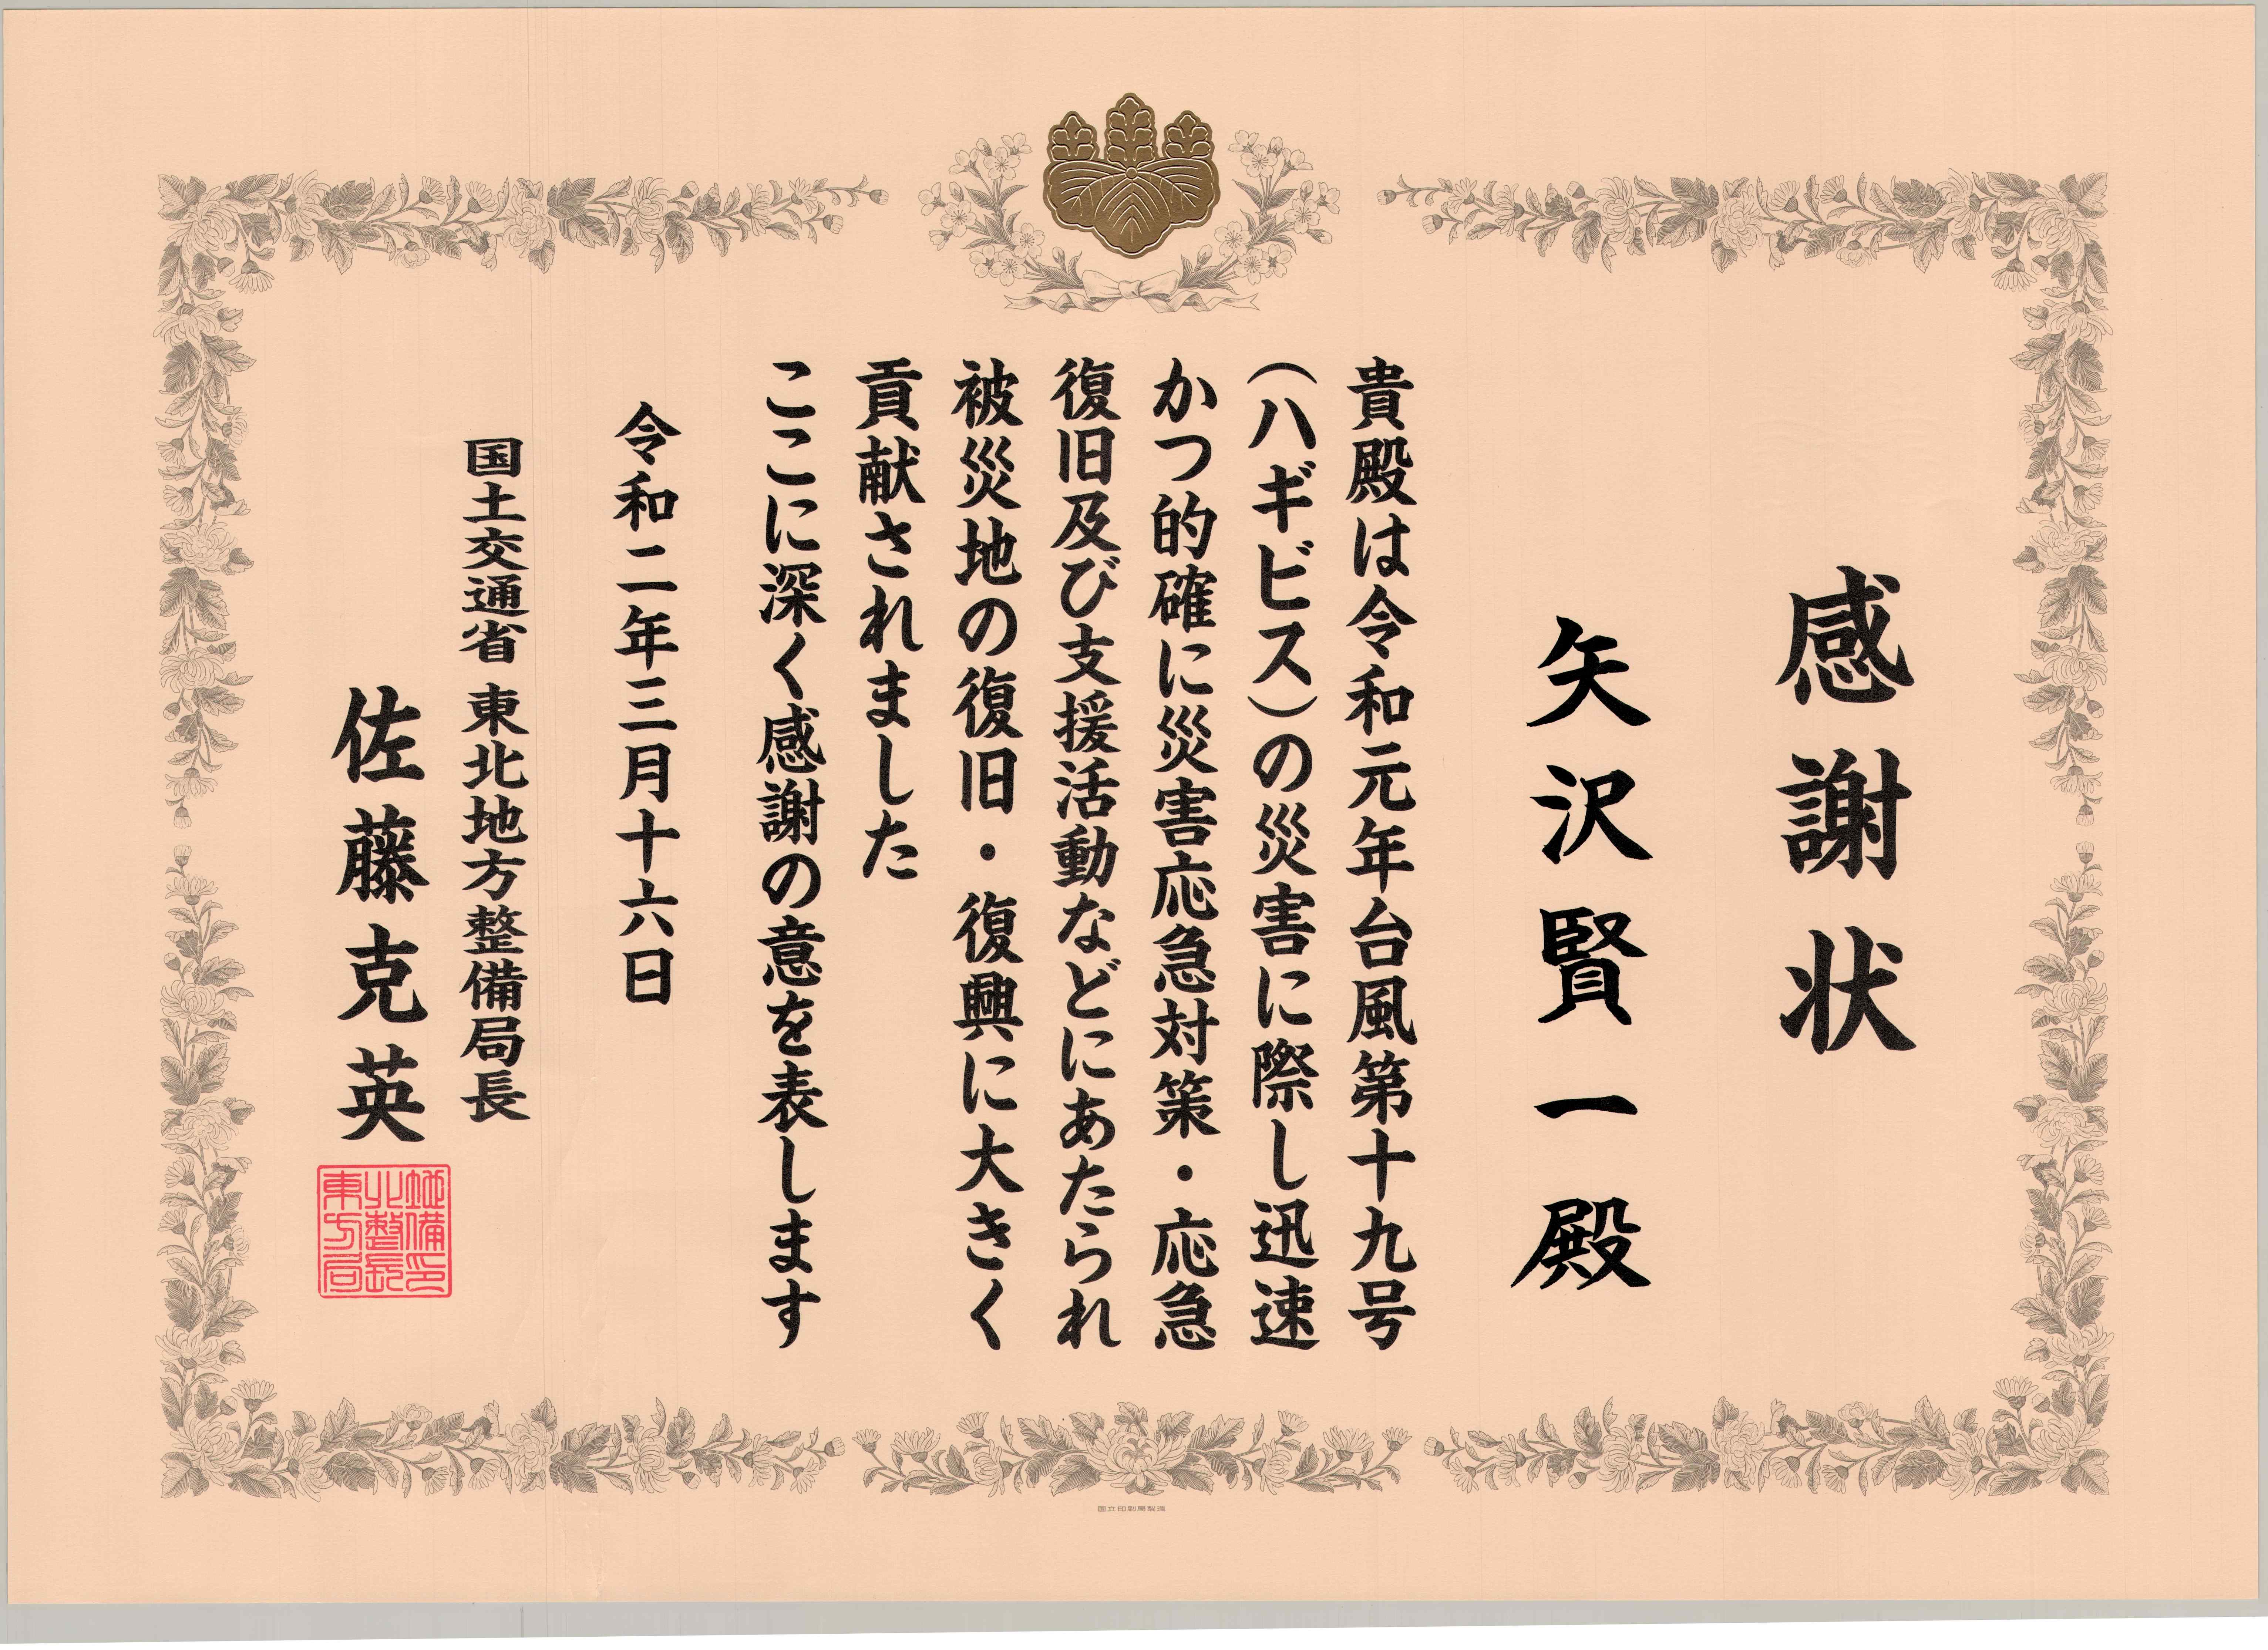 感謝状
矢沢賢一殿
貴殿は令和元年台風第十九号
(ハギビス)の災害に際し迅速
かつ的確に災害応急対策・応急
復旧及び支援活動などにあたられ
被災地の復旧・復興に大きく
貢献されました
ここに深く感謝の意を表します
令和二年三月十六日
国土交通省 東北地方整備局長
佐藤克英
東北地方整備局長印
国立印刷局製造